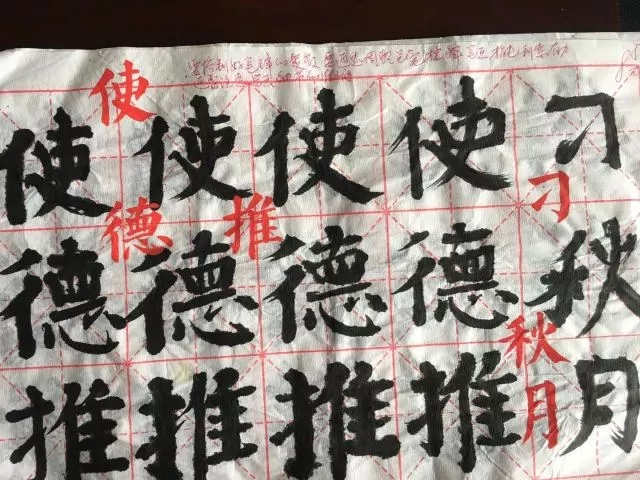 刁秋月
刁秋月
使德推
使德推
推
使德推
使德
使德推